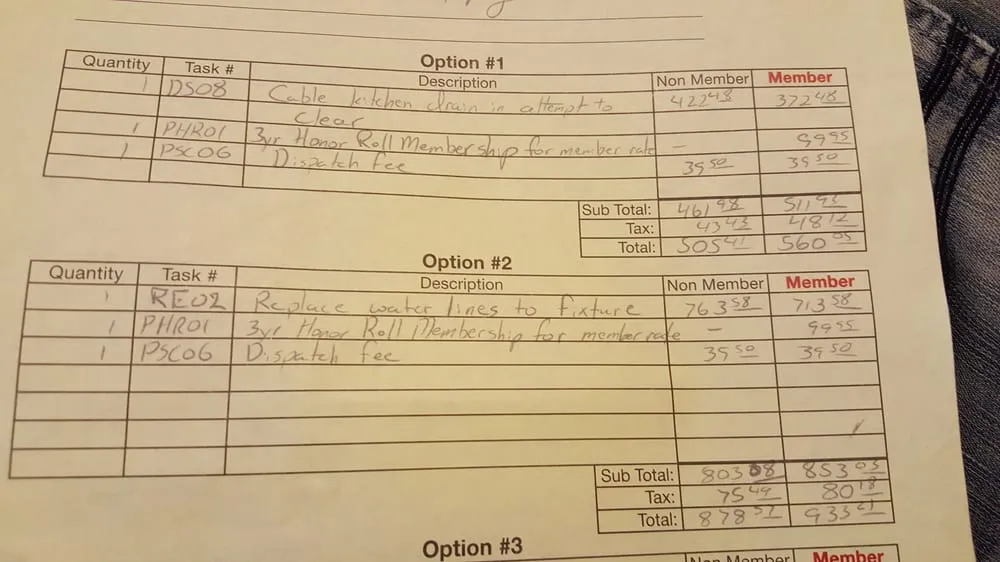 Option #1
Quantity Task # Description Non Member Member
1 DS08 Cable kitchen drain in attempt to 422 48 372 48
clear
1 PHR01 3yr Honor Roll Membership for member rate — 99 95
1 PSC06 Dispatch fee 39 50 39 50
Sub Total: 461 98 511 93
Tax: 43 43 48 12
Total: 505 41 560 05
Option #2
Quantity Task # Description Non Member Member
1 RE02 Replace water lines to fixture 763 58 713 58
1 PHR01 3yr Honor Roll Membership for member rate — 99 95
1 PSC06 Dispatch fee 39 50 39 50
Sub Total: 803 08 853 03
Tax: 75 49 80 18
Total: 878 57 933 21
Option #3
Non Member Member